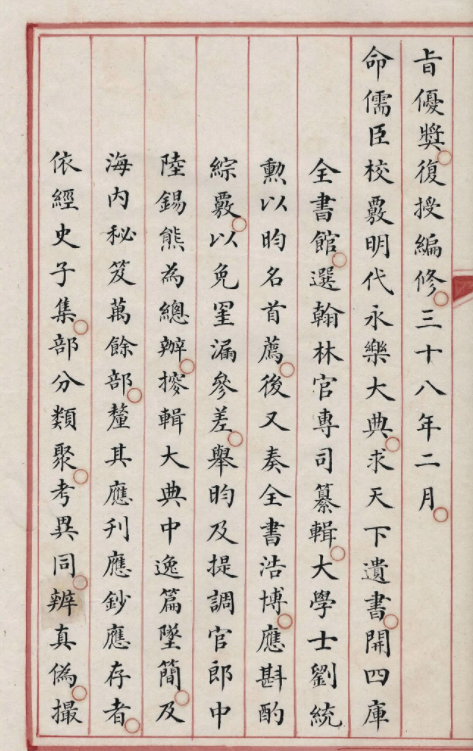 旨優獎復授編修三十八年二月
命儒臣校覈明代永樂大典求天下遺書開四庫
全書館選翰林官專司纂輯大學士劉統
勲以昀名首薦後又奏全書浩博應斟酌
綜覈以免罣漏參差舉昀及提調官郎中
陸錫熊為總辦搜輯大典中逸篇墜簡及
海内秘笈萬餘部釐其應刊應鈔應存者
依經史子集部分類聚考異同辨真僞撮